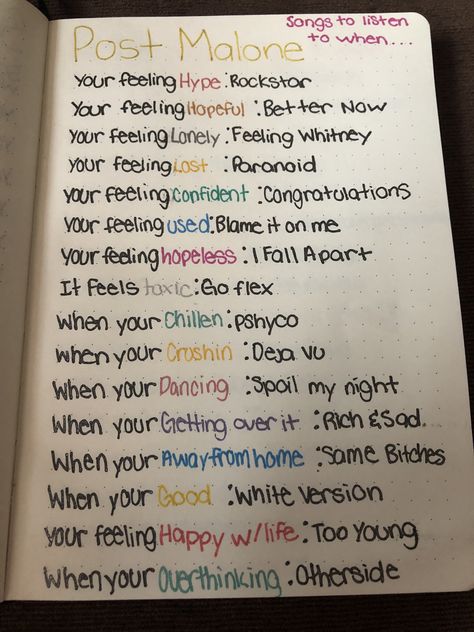 Songs to listen
to when...
Post Malone
Your feeling Hype: Rockstar
Your feeling Hopeful: Better Now
Your feeling Lonely: Feeling Whitney
Your feeling Lost: Paranoid
Your feeling Confident: Congratulations
Your feeling used: Blame it on me
Your feeling hopeless: I Fall Apart
It Feels toxic: Go flex
When your Chillen: Pshyco
When your Crushin: Deja vu
When your Dancing: Spoil my night
When your Getting over it: Rich & Sad.
When your Away from home: Same Bitches
When your Good: White Version
Your feeling Happy w/ life: Too Young
When your Overthinking: Otherside